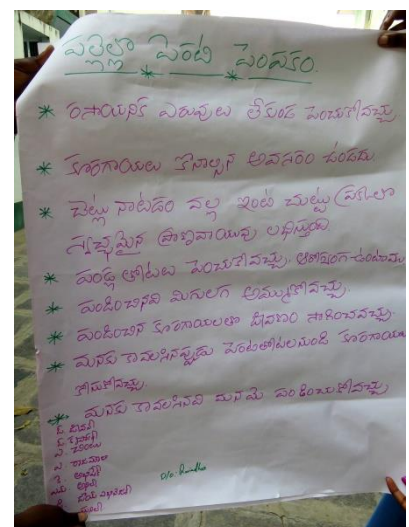 పల్లెల్లొ పెరటి పెంపకం.
* రసాయనిక ఎరువులు లేకుండ పెంచుకోవచ్చు
* కూరగాయలు కొనాల్సిన అవసరం ఉండదు.
* చెట్లు నాటడం వల్ల ఇంటి చుట్టు ప్రక్కలా
స్వచ్ఛమైన ప్రాణవాయువు లభిస్తుంది
* పండ్ల తోటలు పెంచుకోవచ్చు. ఆరోగ్యంగా ఉంటాము
* పండించినవి మిగులగ అమ్ముకోవచ్చు.
* పండించిన కూరగాయలతొ జీవనం సాగించవచ్చు.
* మనకు కావలసినప్పుడు పెరటితోటలనుండి కూరగాయ
కోసుకోవచ్చు.
* మనకు కావలసినవి మనమె పండించుకోవచ్చు